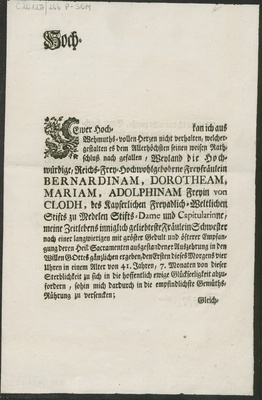 Hoch-
Ewer Hoch- kan ich aus
Wehmuths-vollen Hertzen nicht verhalten, welcher-
gestalten es dem Allerhöchsten seinen weisen Rath-
schluß nach gefallen, Weyland die Hoch-
würdige, Reichs-Frey-Hochwohlgebohrne Freyfräulein
BERNARDINAM, DOROTHEAM,
MARIAM, ADOLPHINAM Freyin von
CLODH, des Kayserlichen Freyadlich-Weltlichen
Stifts zu Medelen Stifts-Dame und Capitularinne,
meine Zeitlebens inniglich geliebteste Fräulein Schwester
nach einer langwierigen mit gröster Gedult und öfterer Empfan-
gung deren Heil. Sacramenten ausgestandener Auszehrung in den
Willen GOttes gäntzlichen ergeben, den Ersten dieses Morgens vier
Uhren in einem Alter von 41. Jahren, 7. Monaten von dieser
Sterblichkeit zu sich in die hoffentlich ewige Glückseeligkeit abzu-
fordern, sohin mich dardurch in die empfindlichste Gemüths-
Rührung zu versencken;
Gleich-